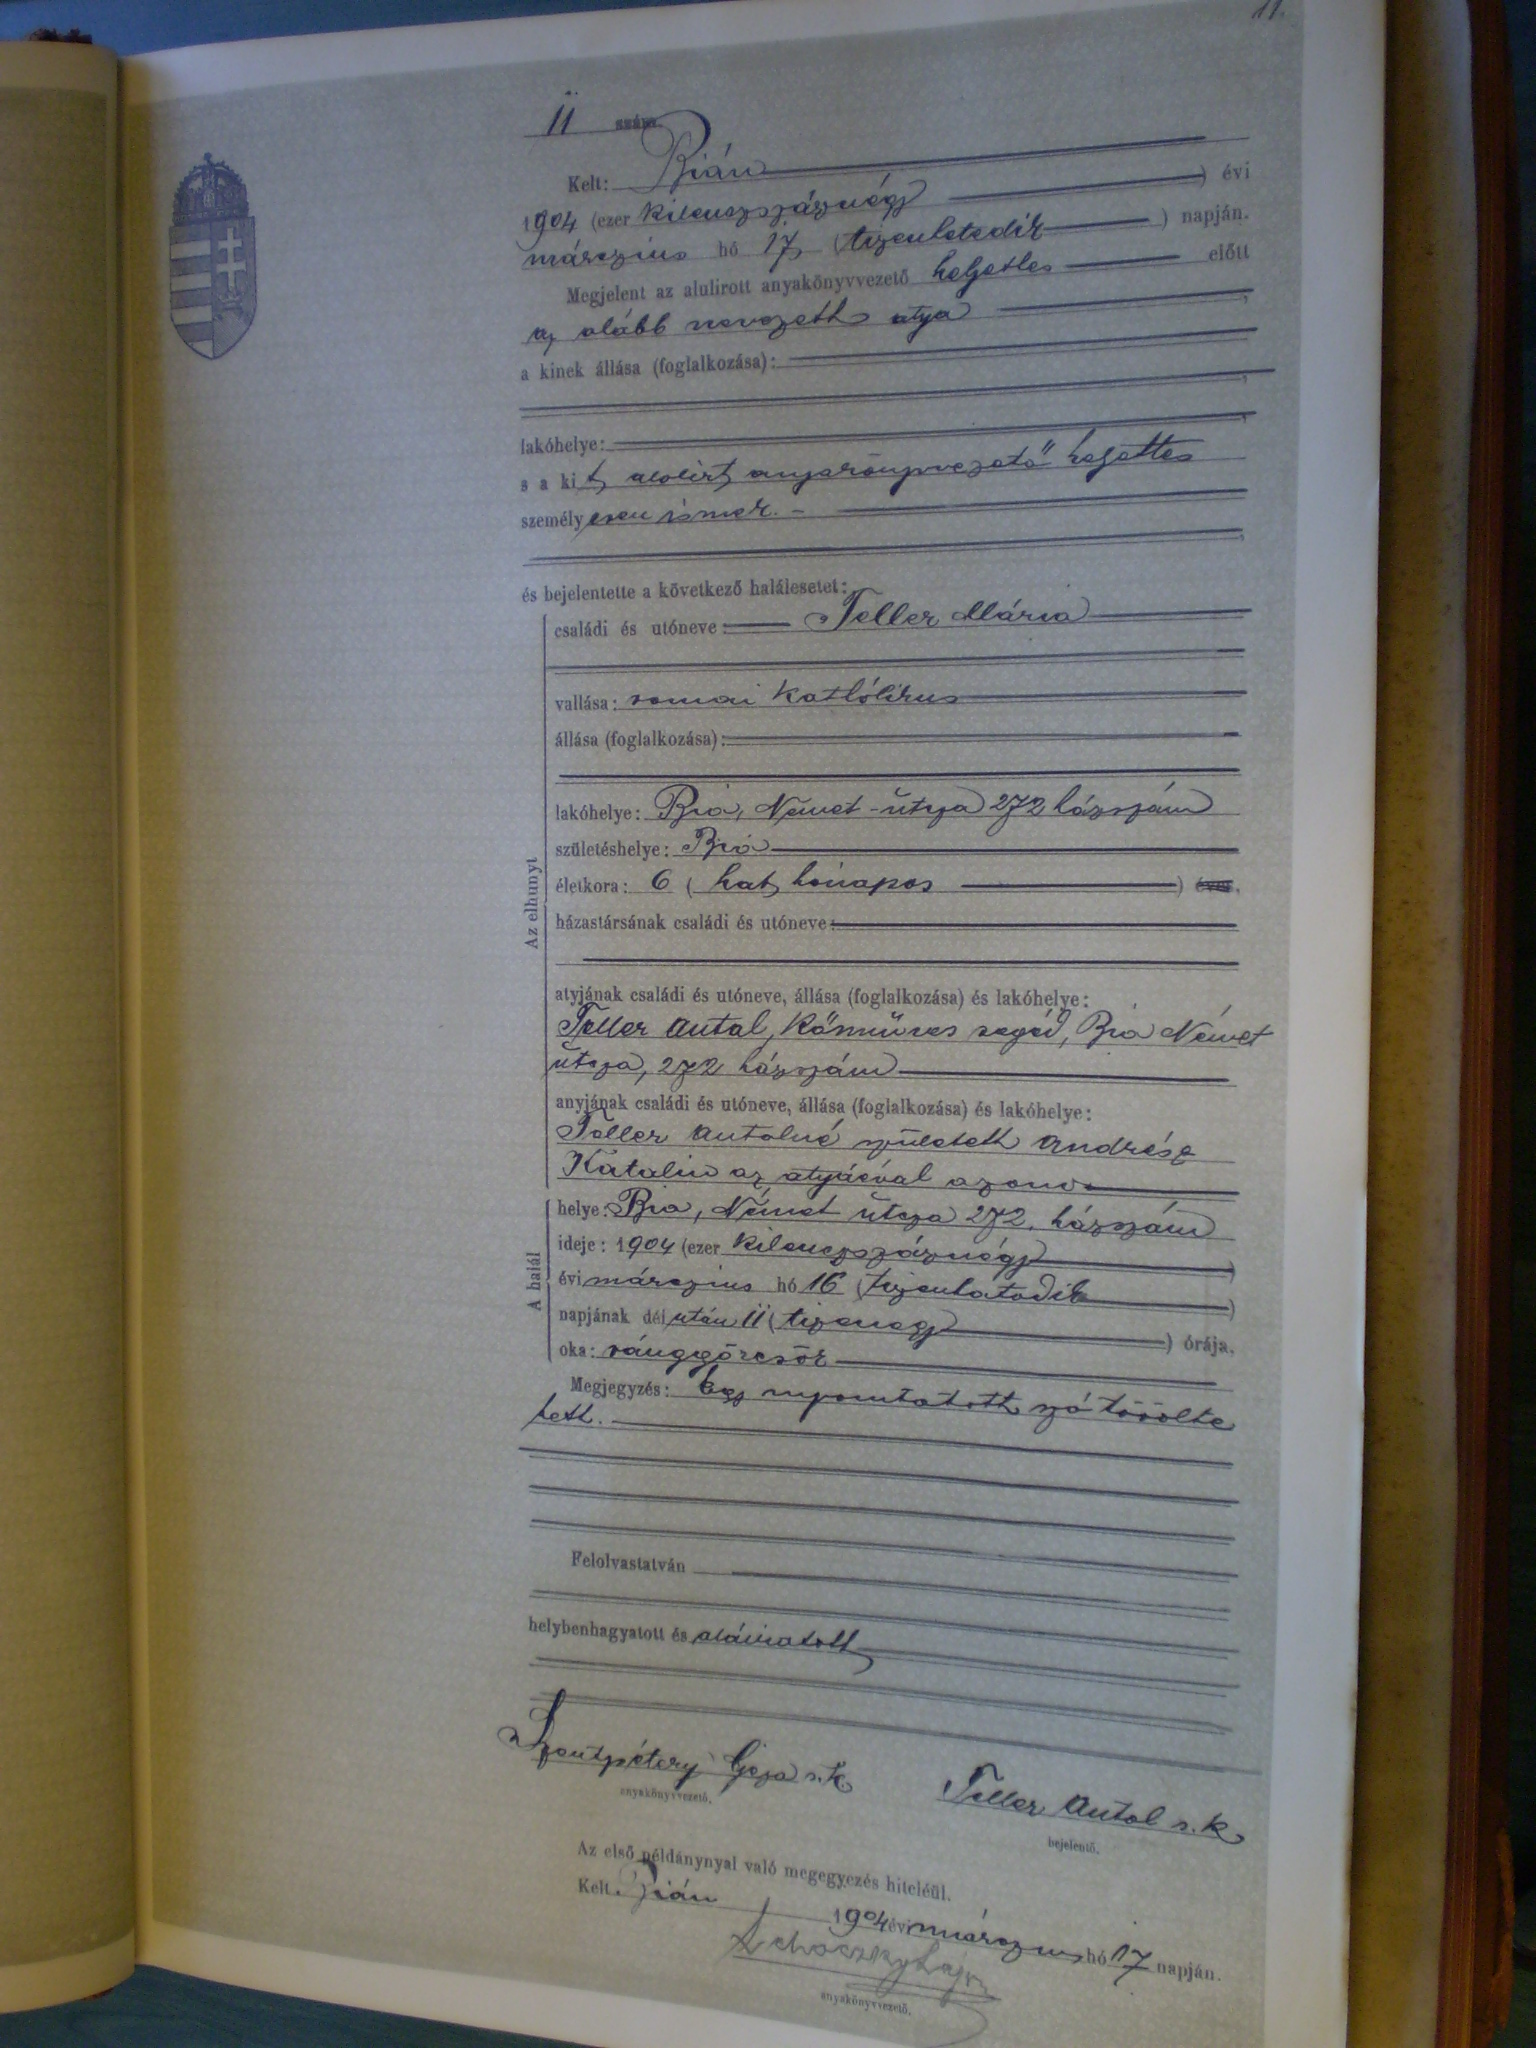 11.
11 szám.
Kelt: Bián
1904 (ezer kilenczszáznégy) évi
márczius hó 17 (tizenhetedik) napján.
Megjelent az alulirott anyakönyvvezető helyettes előtt
az alább nevezett atya
a kinek állása (foglalkozása):
lakóhelye:
s a kit alolirt anyakönyvvezető helyettes
személyesen ismer. -
és bejelentette a következő halálesetet:
Az elhunyt
családi és utóneve: Teller Mária
vallása: romai katholikus
állása (foglalkozása):
lakóhelye: Bia, Német-útcza 272 házszám
születéshelye: Bia
életkora: 6 (hat hónapos) éves.
házastársának családi és utóneve:
atyjának családi és utóneve, állása (foglalkozása) és lakóhelye:
Teller Antal, kőmüves segéd, Bia Német
útcza, 272 házszám
anyjának családi és utóneve, állása (foglalkozása) és lakóhelye:
Teller Antalné született Andrész
Katalin az atyáéval azonos
A halál
helye: Bia, Német útcza 272. házszám
ideje: 1904 (ezer kilenczszáznégy)
évi márczius hó 16 (tizenhatodik)
napjának délután 11 (tizenegy) órája.
oka: ránggörcsök
Megjegyzés: Egy nyomtatott szó törölte
tett.
Felolvastatván
helybenhagyatott és aláiratott
Szentpétery Géza s.k.
anyakönyvvezető.
Teller Antal s.k.
bejelentő.
Az első példánynyal való megegyezés hiteléül.
Kelt Bián 1904 évi márczius hó 17 napján.
anyakönyvvezető.